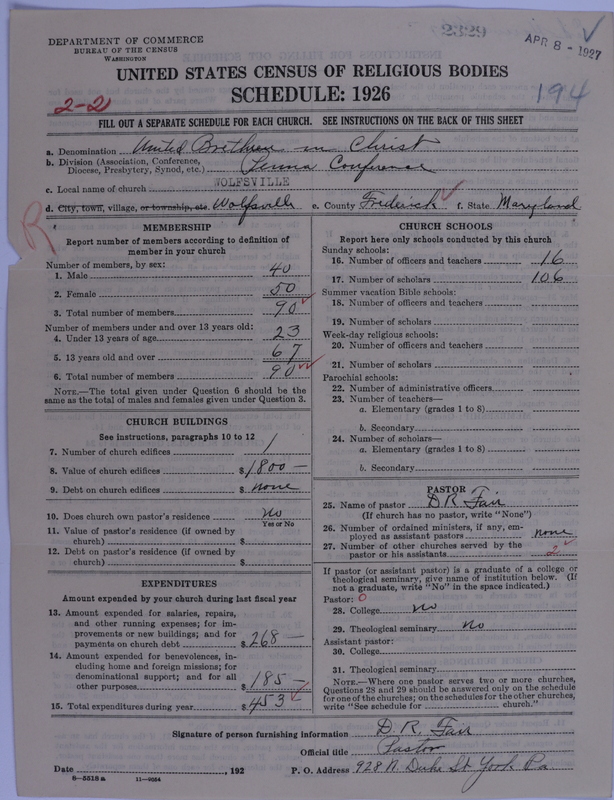 DEPARTMENT OF COMMERCE
BUREAU OF THE CENSUS
WASHINGTON
APR 8 - 1927
UNITED STATES CENSUS OF RELIGIOUS BODIES
SCHEDULE: 1926
2-2
194
FILL OUT A SEPARATE SCHEDULE FOR EACH CHURCH. SEE INSTRUCTIONS ON THE BACK OF THIS SHEET
a. Denomination United Brethren in Christ
b. Division (Association, Conference, Diocese, Presbytery, Synod, etc.) Penna Conference
c. Local name of church WOLFSVILLE
d. City, town, village, or township, etc. Wolfsville e. County Frederick f. State Maryland
R
MEMBERSHIP
Report number of members according to definition of
member in your church
Number of members, by sex:
1. Male 40
2. Female 50
3. Total number of members 90
Number of members under and over 13 years old:
4. Under 13 years of age 23
5. 13 years old and over 67
6. Total number of members 90
NOTE.—The total given under Question 6 should be
same as the total of males and females given under Question 3.
CHURCH BUILDINGS
See instructions, paragraphs 10 to 12
7. Number of church edifices 1
8. Value of church edifices $ 1800 —
9. Debt on church edifices $ none
10. Does church own pastor's residence no
Yes or No
11. Value of pastor's residence (if owned by
church) $
12. Debt on pastor's residence (if owned by
church) $
EXPENDITURES
Amount expended by your church during last fiscal year
13. Amount expended for salaries, repairs,
and other running expenses; for im-
provements or new buildings; and for
payments on church debt $ 268 —
14. Amount expended for benevolences, in-
cluding home and foreign missions; for
denominational support; and for all
other purposes $ 185 —
15. Total expenditures during year $ 453
CHURCH SCHOOLS
Report here only schools conducted by this church
Sunday schools:
16. Number of officers and teachers 16
17. Number of scholars 106
Summer vacation Bible schools:
18. Number of officers and teachers
19. Number of scholars
Week-day religious schools:
20. Number of officers and teachers
21. Number of scholars
Parochial schools:
22. Number of administrative officers
23. Number of teachers—
a. Elementary (grades 1 to 8)
b. Secondary
24. Number of scholars—
a. Elementary (grades 1 to 8)
b. Secondary
PASTOR
25. Name of pastor D R Fair
(If church has no pastor, write "None")
26. Number of ordained ministers, if any, em-
ployed as assistant pastors none
27. Number of other churches served by the
pastor or his assistants 2
If pastor (or assistant pastor) is a graduate of a college or
theological seminary, give name of institution below. (If
not a graduate, write "No" in the space indicated.)
Pastor: 0
28. College no
29. Theological seminary no
Assistant pastor:
30. College
31. Theological seminary
NOTE.—Where one pastor serves two or more churches,
Questions 28 and 29 should be answered only on the schedule
for one of the churches; on the schedules for the other churches,
write "See schedule for church."
Signature of person furnishing information D. R. Fair
Official title Pastor
Date , 192 P. O. Address 928 N. Duke St York Pa
8-5518 a 11-9024